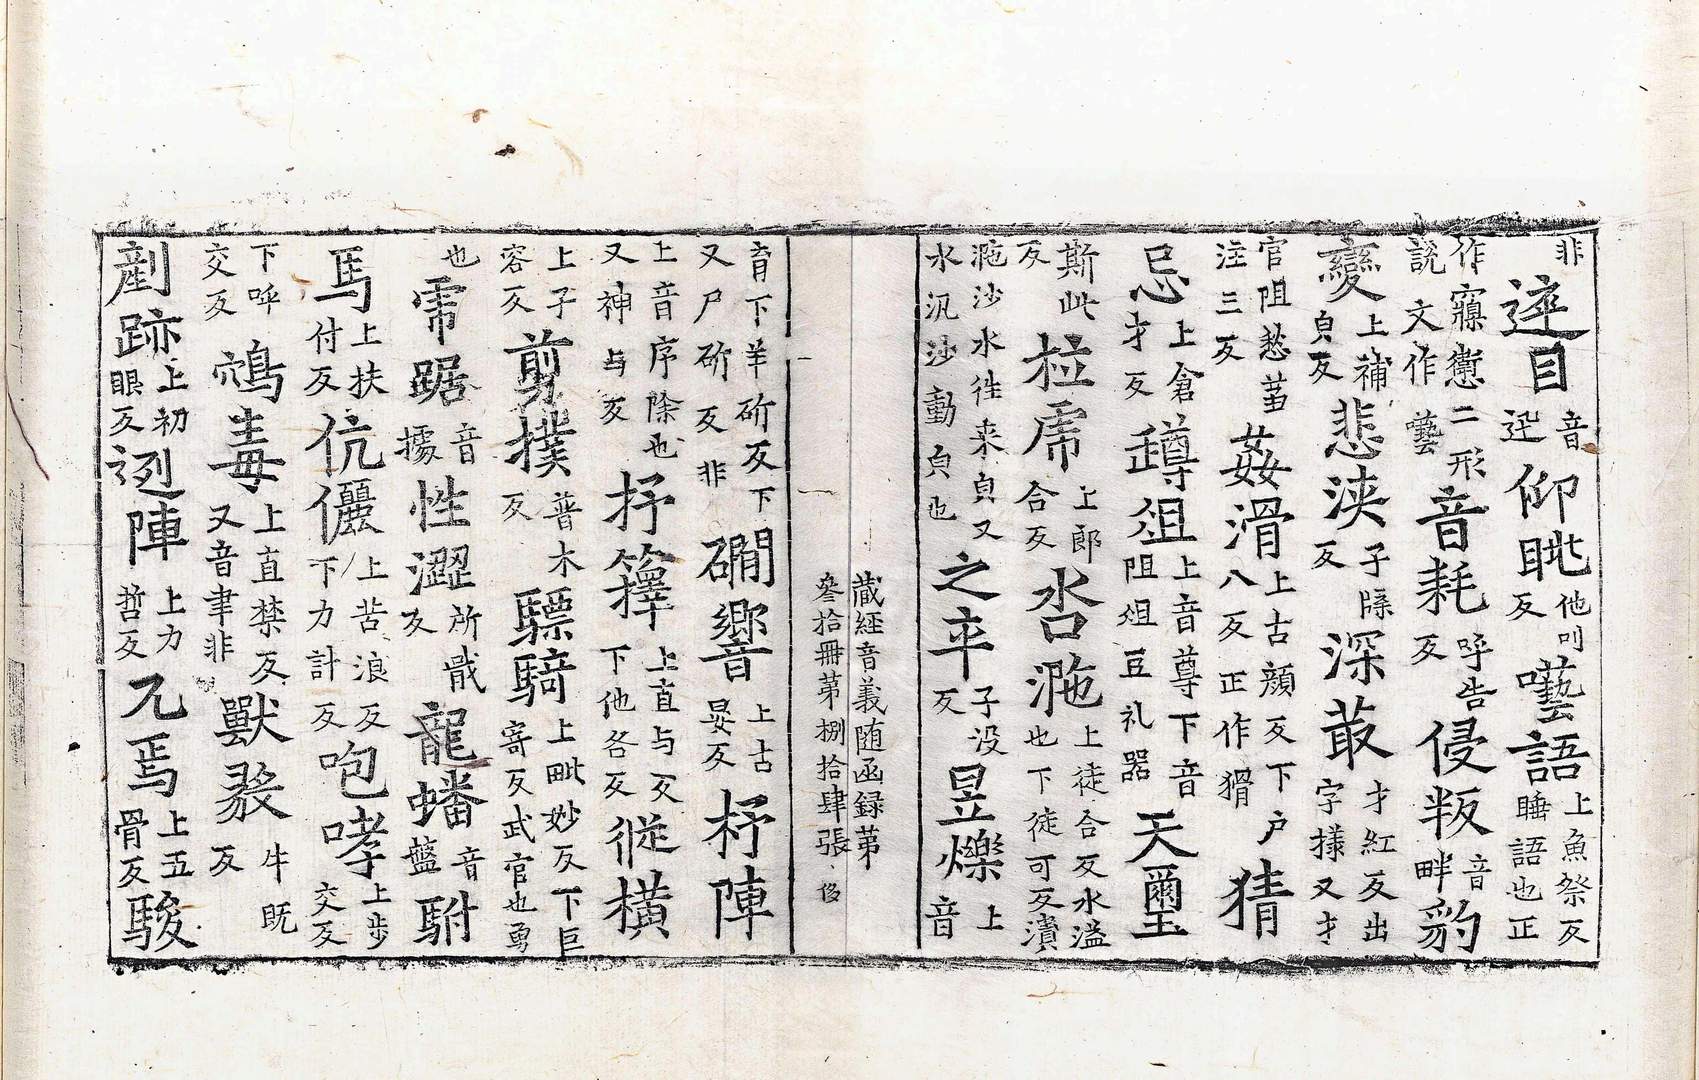 非目音迎仰眺他叫反囈語上魚祭反睡語也正
作寱二形説文作囈音耗呼告反侵叛音畔豹
變上補皃反悲浹子牒反深菆才紅反出字樣又才
官阻愁菑注三反姦滑上古顔反下户八反正作猾猜
忌上倉才反蹲俎上音尊下音阻俎豆礼器天璽
斯此反拉席上郎合反沓沲上徒合反水溢也下徒可反瀵
沲沙水往来皃又水汎沙動皃也之卒子没反昱爍上音
藏經音義随函録第
叁拾冊第捌拾肆張 侈
育下羊斫反下又尸斫反非磵響上古晏反杼陣
上音序除也又神与反抒籜上直与反下他各反從橫
上子容反剪撲普木反驃騎上毗妙反下巨寄反武官也勇
也虎踞音據性澀所戢反龍蟠音盤駙
馬上扶付反伉儷上苦浪反下力計反咆哮上步交反
下呼交反鴆毒上直禁反又音聿非獸毅牛既反
剷跡上初眼反迾陣上力哲反兀焉上五骨反駿